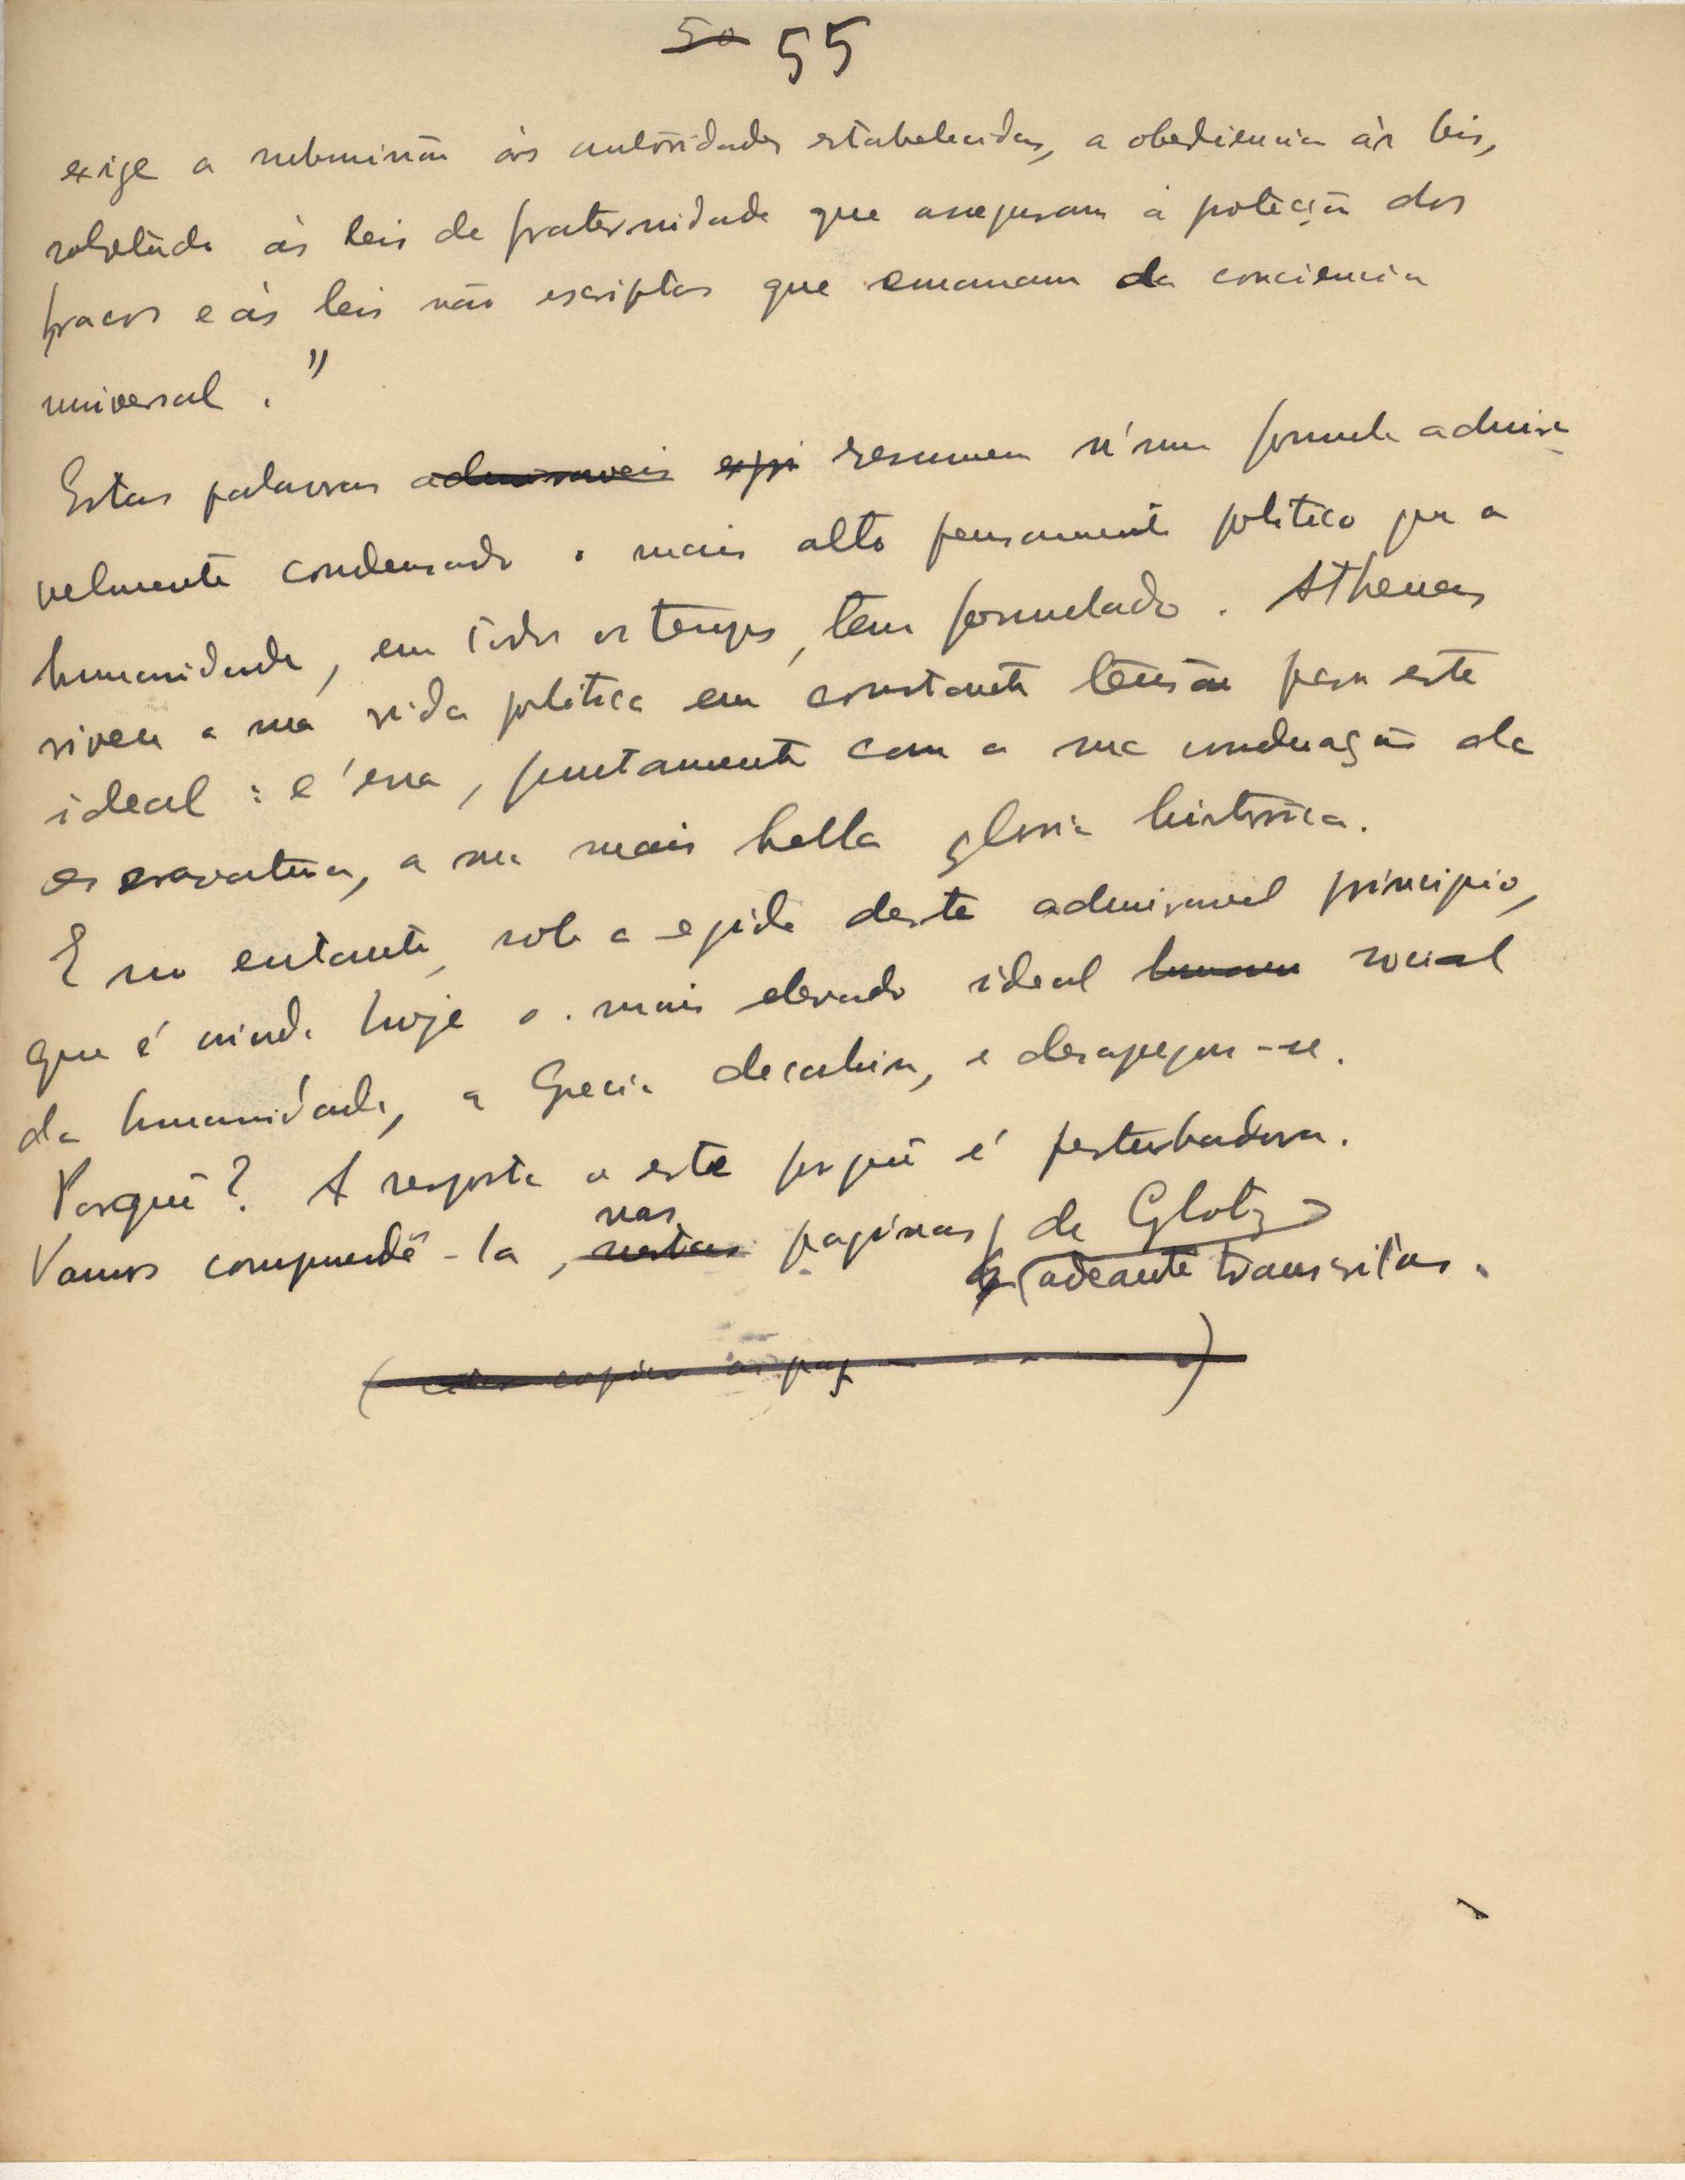 50 55
exige a submissão ás autoridades estabelecidas, a obediencia ás leis,
sobretudo ás leis de fraternidade que asseguram a proteção dos
fracos e ás leis não escriptas que emanam da conciencia
universal."
Estas palavras admiraveis expri resumem n'uma formula admira
velmente condensada o mais alto pensamento politico que a
humanidade, em todos os tempos, tem formulado. Athenas
viveu a sua vida politica em constante tensão para este
ideal: é essa, juntamente com a sua condenação da
escravatura, a sua mais bella gloria historica.
E no entanto, sob a egide deste admiravel principio,
que é ainda hoje o mais elevado ideal humano social
da humanidade, a Grecia decahiu, e desapegou-se.
Porquê? A resposta a este porquê é perturbadora.
Vamos comprendê-la, nestas nas paginas de Glotz
adeante transcritas.
( copiar as pag )